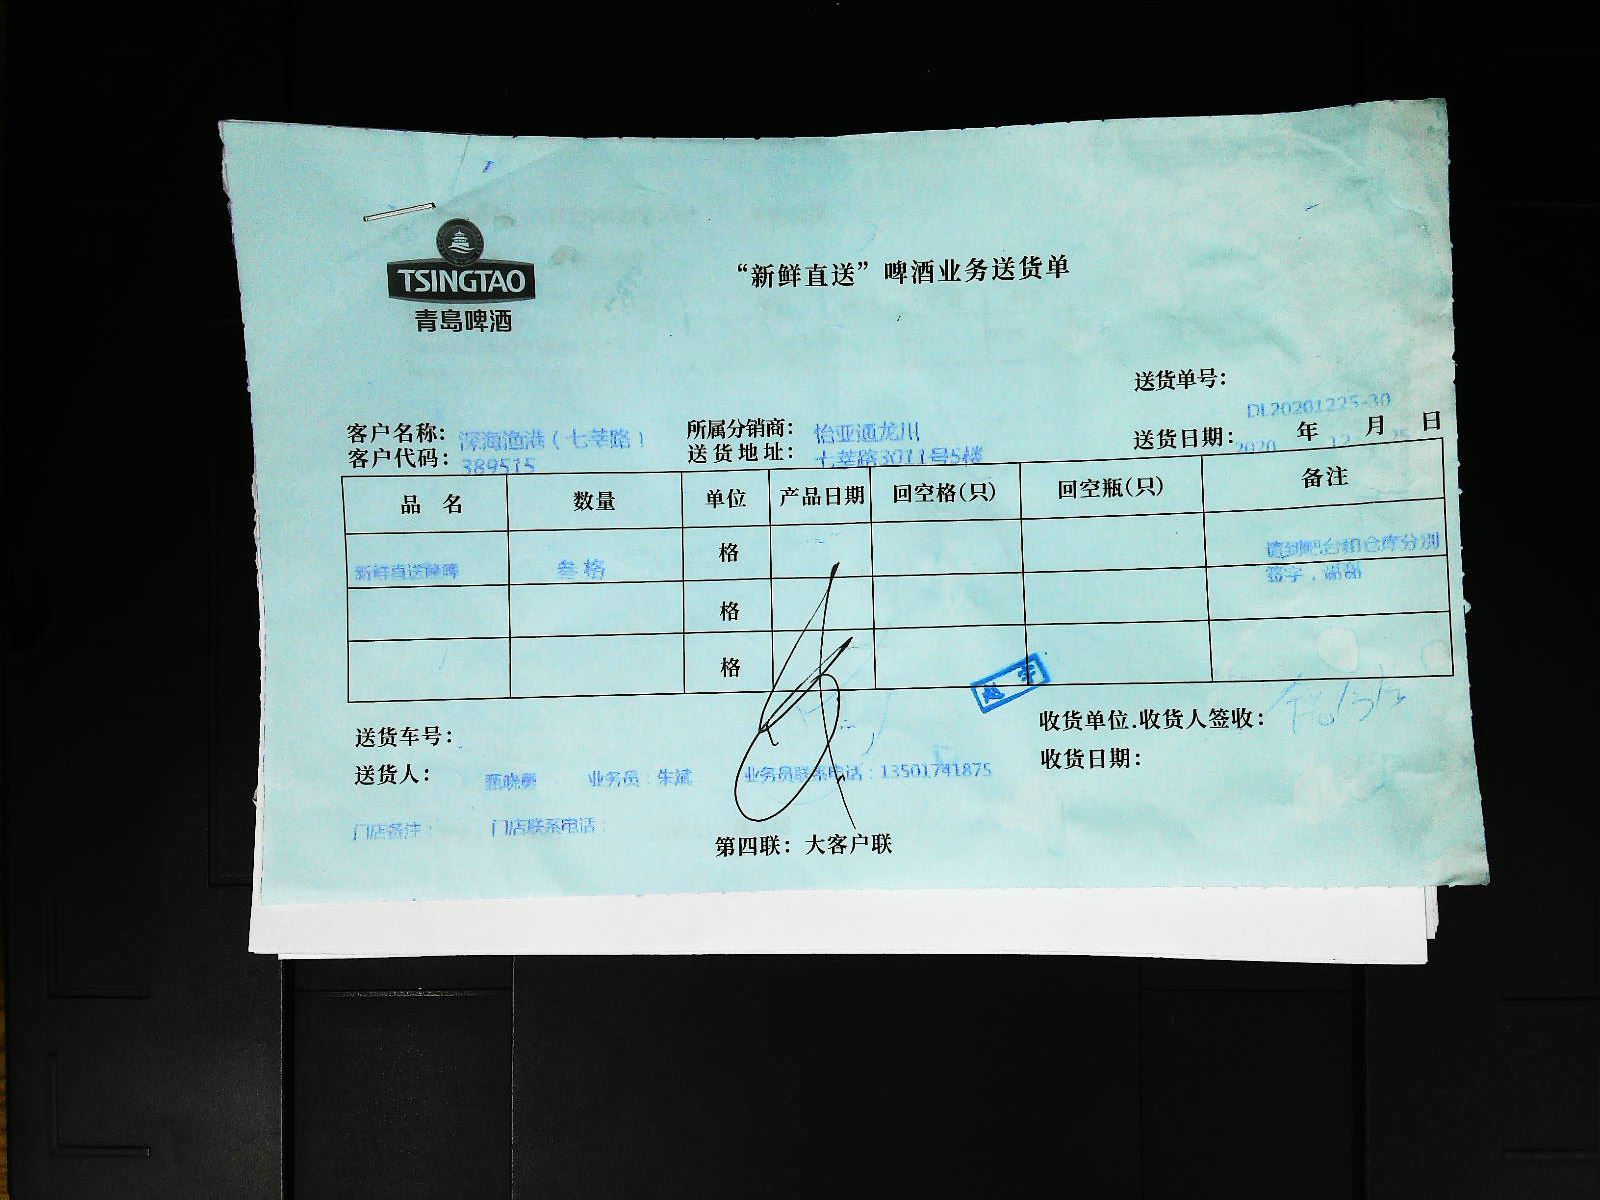 TSINGTAO
青島啤酒
“新鲜直送”啤酒业务送货单
送货单号：
DL20201225-30
客户名称： 深海渔港（七莘路） 所属分销商： 怡亚通龙川 送货日期： 2020 年 12 月 25 日
客户代码： 389515 送货地址： 七莘路3011号5楼
品 名 数量 单位 产品日期 回空格(只) 回空瓶(只) 备注
新鲜直送 叁格 格 请到吧台和仓库分别
签字，谢谢
格
格
赵宇
送货车号： 收货单位.收货人签收：
送货人： 甄晓勇 业务员：朱斌 业务员联系电话：13501741875 收货日期：
门店备注： 门店联系电话：
第四联：大客户联